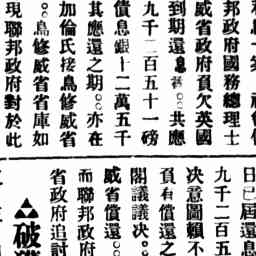 邦政府國務總理士
威省政府項欠英國
到期還息 。共應
九千二百五十一磅
償息銀十二萬五千
其應還之期。。亦在
加倫氏接鳥修威省
。。鳥修威省省庫如
現聯邦政府對於此
日已屆還息
九千二百五
决意圖賴不
負有償還之
閣議議决。。
威省償還。。
而聯邦政府
省政府追討
破獲